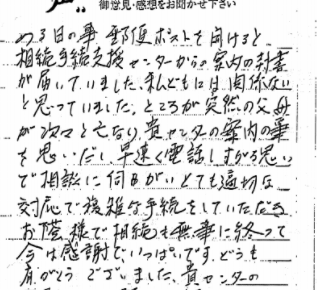 御意見・感想をお聞かせ下さい
ある日の事 郵便ポストを開けると
相続手続支援センターからの案内の封書
が届いていました。私どもには関係ない
と思っていました。ところが突然の父母
が次々と亡なり、貴センターの案内の事
を思いだし、早速く電話しすがる思い
で相談に伺いとても適切な
対応で複雑な手続をしていただき
お陰様で相続も無事に終って
今は感謝でいっぱいです。どうも
有がとうございました。貴センターの